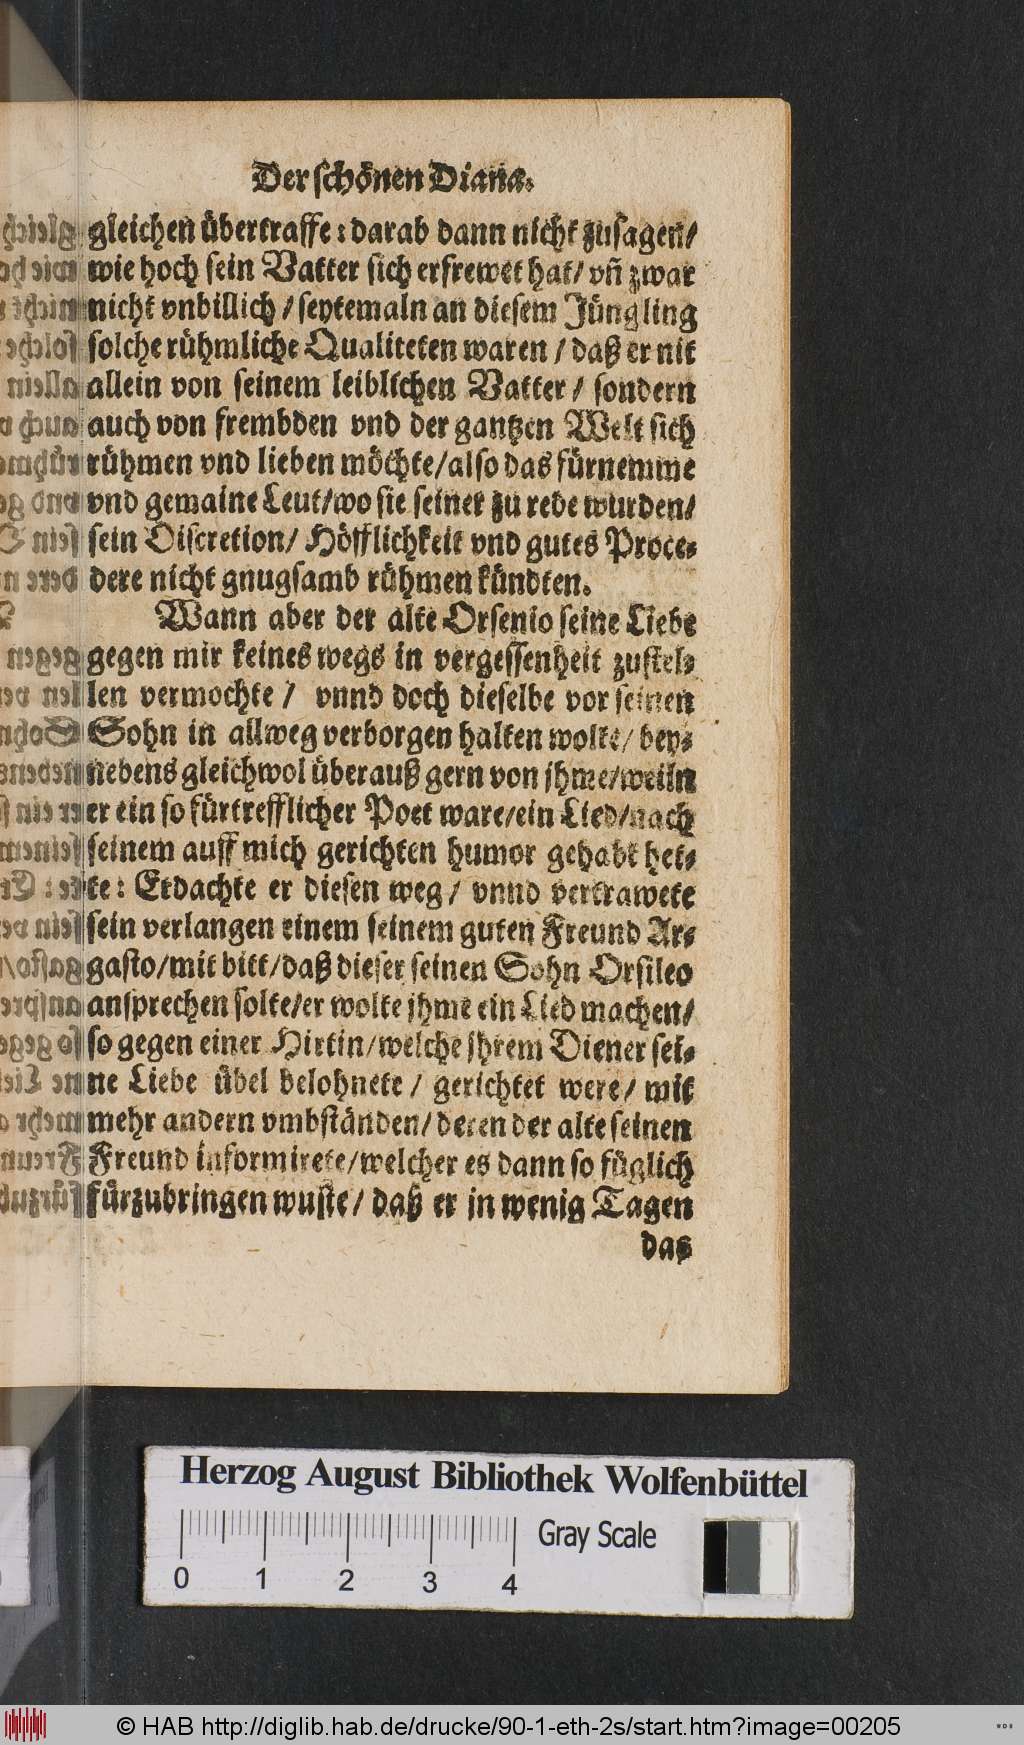 Der schönen Diana.
gleichen übertraffe: darab dann nicht zusagen/
wie hoch sein Vatter sich erfrewet hat/ vñ zwar
nicht vnbillich/ seytemaln an diesem Jüngling
solche rühmliche Qualiteten waren/ daß er nit
allein von seinem leiblichen Vatter/ sondern
auch von frembden vnd der gantzen Welt sich
rühmen vnd lieben möchte/ also das fürnemme
vnd gemaine Leut/ wo sie seiner zu rede wurden/
sein Discretion/ Höfflichkeit vnd gutes Proce-
dere nicht gnugsamb rühmen kündten.
Wann aber der alte Orsenio seine Liebe
gegen mir keines wegs in vergessenheit zustel-
len vermochte/ vnnd doch dieselbe vor seinen
Sohn in allweg verborgen halten wolte/ bey-
nebens gleichwol überauß gern von jhme/ weiln
er ein so fürtrefflicher Poet ware/ ein Lied/ nach
seinem auff mich gerichten humor gehabt het-
te: Erdachte er diesen weg/ vnnd vertrawete
sein verlangen einem seinem guten Freund Ar-
gasto/ mit bitt/ daß dieser seinen Sohn Orsileo
ansprechen solte/ er wolte jhme ein Lied machen/
so gegen einer Hirtin/ welche jhrem Diener sei-
ne Liebe übel belohnete/ gerichtet were/ mit
mehr andern vmbständen/ deren der alte seinen
Freund informirete/ welcher es dann so füglich
fürzubringen wuste/ daß er in wenig Tagen
das
Herzog August Bibliothek Wolfenbüttel
0 1 2 3 4 Gray Scale
© HAB http://diglib.hab.de/drucke/90-1-eth-2s/start.htm?image=00205